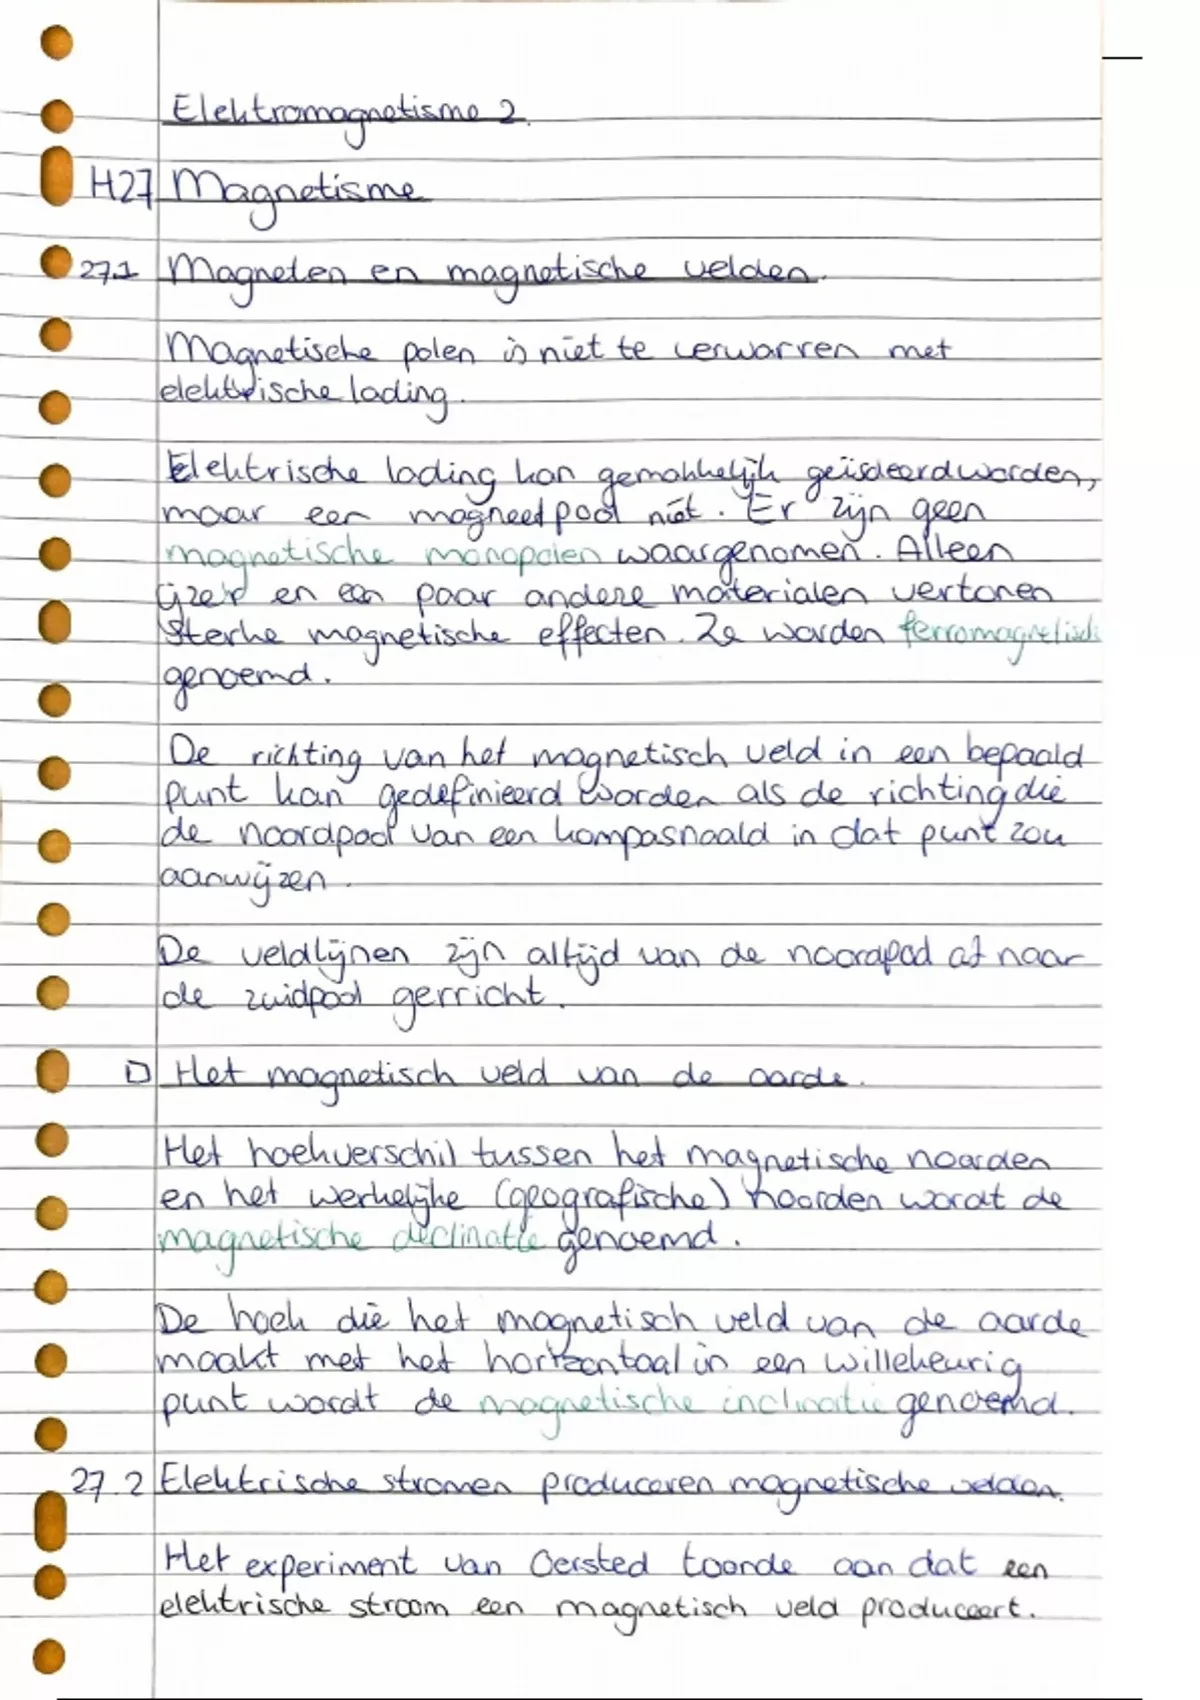 Elektromagnetisme 2.
H27 Magnetisme
27.1 Magneten en magnetische velden.
Magnetische polen is niet te verwarren met
elektrische lading.
Elektrische lading kan gemakkelijk geïsoleerd worden,
maar een magneetpool niet. Er zijn geen
magnetische monopolen waargenomen. Alleen
ijzer en een paar andere materialen vertonen
sterke magnetische effecten. Ze worden ferromagnetisch
genoemd.
De richting van het magnetisch veld in een bepaald
punt kan gedefinieerd worden als de richting die
de noordpool van een kompasnaald in dat punt zou
aanwijzen.
De veldlijnen zijn altijd van de noordpool af naar
de zuidpool gerricht.
D Het magnetisch veld van de aarde.
Het hoekverschil tussen het magnetische noorden
en het werkelijke (geografische) noorden wordt de
magnetische declinatie genoemd.
De hoek die het magnetisch veld van de aarde
maakt met het horizontaal in een willekeurig
punt wordt de magnetische inclinatie genoemd.
27.2 Elektrische stromen produceren magnetische velden.
Het experiment van Oersted toonde aan dat een
elektrische stroom een magnetisch veld produceert.